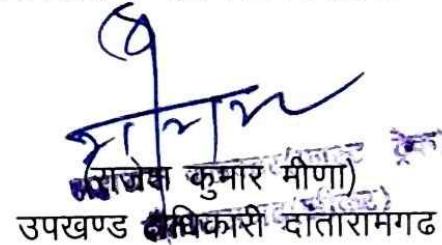 (राजेश कुमार मीणा)
उपखण्ड अधिकारी दांतारामगढ